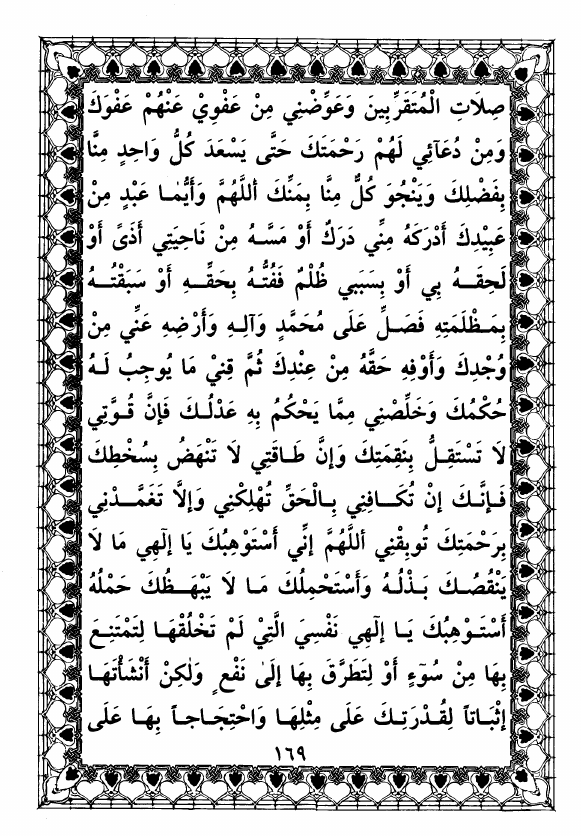 صِلَاتِ الْمُتَقَرِّبِينَ وَعَوِّضْنِي مِنْ عَفْوِيْ عَنْهُمْ عَفْوَكَ
وَمِنْ دُعَآئِي لَهُمْ رَحْمَتَكَ حَتَّى يَسْعَدَ كُلُّ وَاحِدٍ مِنَّا
بِفَضْلِكَ وَيَنْجُوَ كُلٌّ مِنَّا بِمَنِّكَ أَللَّهُمَّ وَأَيُّمَا عَبْدٍ مِنْ
عَبِيْدِكَ أَدْرَكَهُ مِنِّي دَرَكٌ أَوْ مَسَّهُ مِنْ نَاحِيَتِي أَذَىً أَوْ
لَحِقَهُ بِي أَوْ بِسَبَبِي ظُلْمٌ فَفُتُّهُ بِحَقِّهِ أَوْ سَبَقْتُهُ
بِمَظْلَمَتِهِ فَصَلِّ عَلَى مُحَمَّدٍ وَآلِهِ وَأَرْضِهِ عَنِّي مِنْ
وُجْدِكَ وَأَوْفِهِ حَقَّهُ مِنْ عِنْدِكَ ثُمَّ قِنِيْ مَا يُوجِبُ لَهُ
حُكْمُكَ وَخَلِّصْنِي مِمَّا يَحْكُمُ بِهِ عَدْلُكَ فَإِنَّ قُوَّتِي
لَا تَسْتَقِلُّ بِنَقِمَتِكَ وَإِنَّ طَاقَتِي لَا تَنْهَضُ بِسُخْطِكَ
فَإِنَّكَ إِنْ تُكَافِنِي بِالْحَقِّ تُهْلِكْنِي وَإِلَّا تَغَمَّدْنِي
بِرَحْمَتِكَ تُوبِقْنِي أَللَّهُمَّ إِنِّي أَسْتَوْهِبُكَ يَا إِلٰهِي مَا لَا
يَنْقُصُكَ بَذْلُهُ وَأَسْتَحْمِلُكَ مَا لَا يَبْهَظُكَ حَمْلُهُ
أَسْتَوْهِبُكَ يَا إِلٰهِي نَفْسِيَ الَّتِيْ لَمْ تَخْلُقْهَا لِتَمْتَنِعَ
بِهَا مِنْ سُوٓءٍ أَوْ لِتَطَرَّقَ بِهَا إِلَىٰ نَفْعٍ وَلٰكِنْ أَنْشَأْتَهَا
إِثْبَاتاً لِقُدْرَتِكَ عَلَى مِثْلِهَا وَاحْتِجَاجاً بِهَا عَلَى
١٦٩